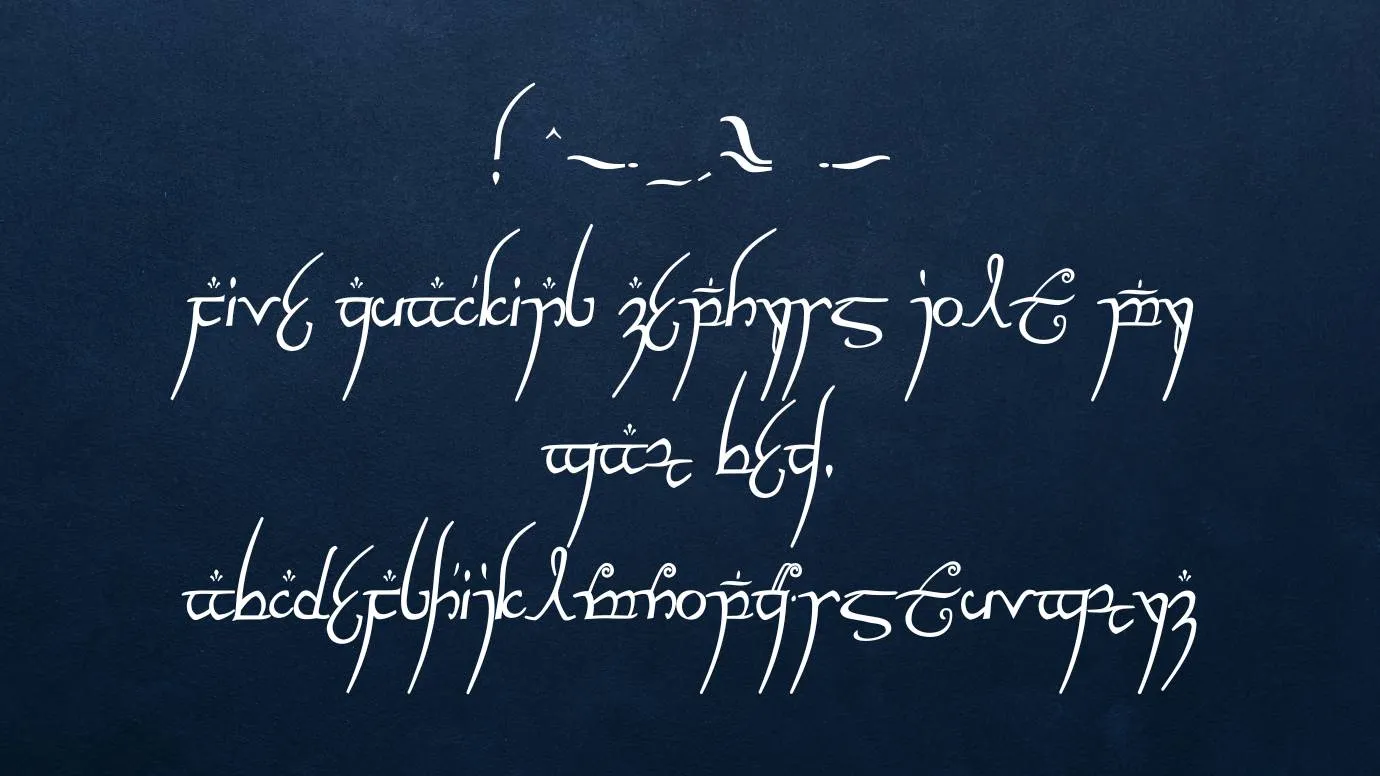 five quacking zephyrs jolt my
wax bed.
abcdefghijklmnopqrstuvwxyz